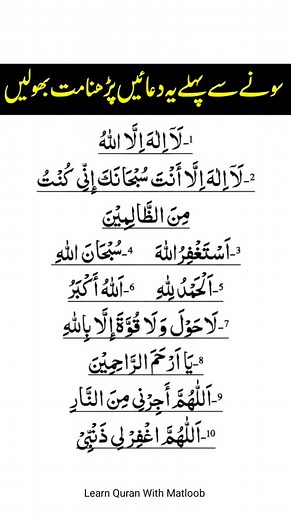 سونے سے پہلے یہ دعائیں پڑھنا مت بھولیں
1-لَآ اِلٰهَ اِلَّا اللهُ
2-لَآ اِلٰهَ اِلَّا أَنْتَ سُبْحَانَكَ إِنِّي كُنْتُ
مِنَ الظَّالِمِيْنَ
3-اَسْتَغْفِرُ اللهَ 4-سُبْحَانَ اللهِ
5-اَلْحَمْدُ لِلّٰهِ 6-اَللهُ أَكْبَرُ
7-لَا حَوْلَ وَلَا قُوَّةَ إِلَّا بِاللهِ
8-يَا اَرْحَمَ الرَّاحِمِيْنَ
9-اَللّٰهُمَّ أَجِرْنِي مِنَ النَّارِ
10-اَللّٰهُمَّ اغْفِرْ لِي ذَنْبِيْ
Learn Quran With Matloob